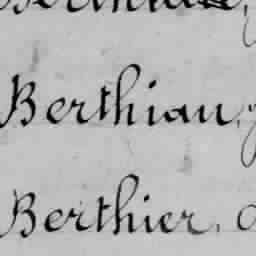 Berthiau,
Berthier.